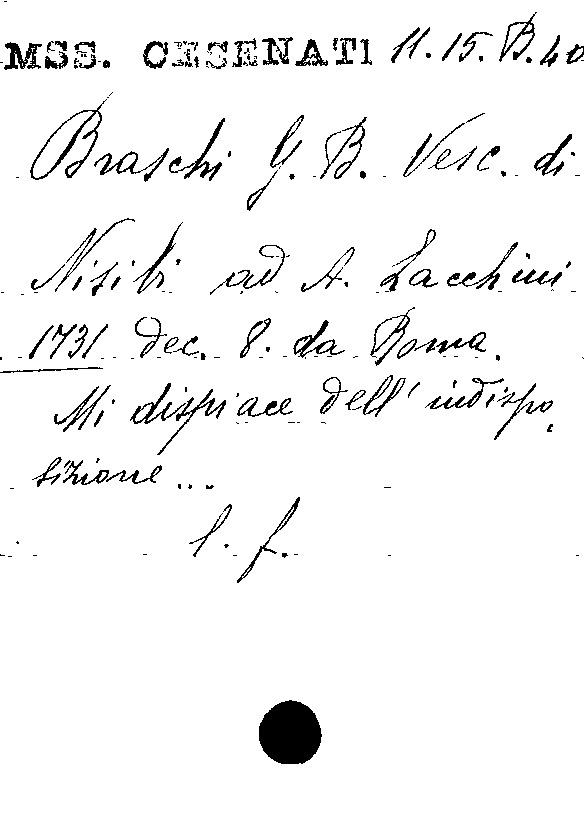 MSS. CESENATI 11.15.B.40
Braschi G. B. Vesc. di
Nisibi ad A. Lacchini
1731 dec. 8. da Roma.
Mi dispiace dell' indispo
sizione...
l. f.